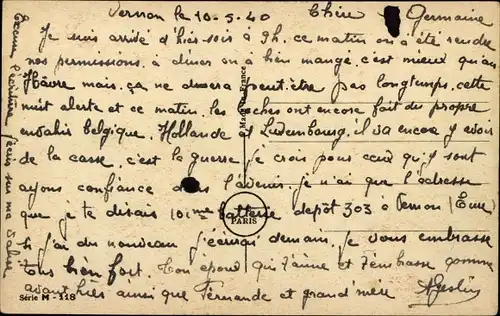 Vernon le 10-5-40 Chère Germaine
Je suis arrivé d'hier soir à 9h. ce matin on a été rendre
nos permissions, à diner on a bien mangé, c'est mieux qu'au
Hâvre mais ça ne durera peut-être pas longtemps, cette
nuit alerte et ce matin, les boches ont encore fait du propre
envahis belgique, Hollande et Luxembourg, il va encore y avoir
de la casse, c'est la guerre, je crois pour ceux qui y sont
ayons confiance dans l'avenir, je n'ai que l'adresse
que je te disais 101me batterie depôt 303 à Vernon (Eure)
si j'ai du nouveau j'écrirai demain, je vous embrasse
tous bien fort. Ton époux qui t'aime et t'embrasse comme
avant hier ainsi que Fernande et grand'mère
Excuse l'écriture j'écris sur ma valise
PARIS
Série M - 118